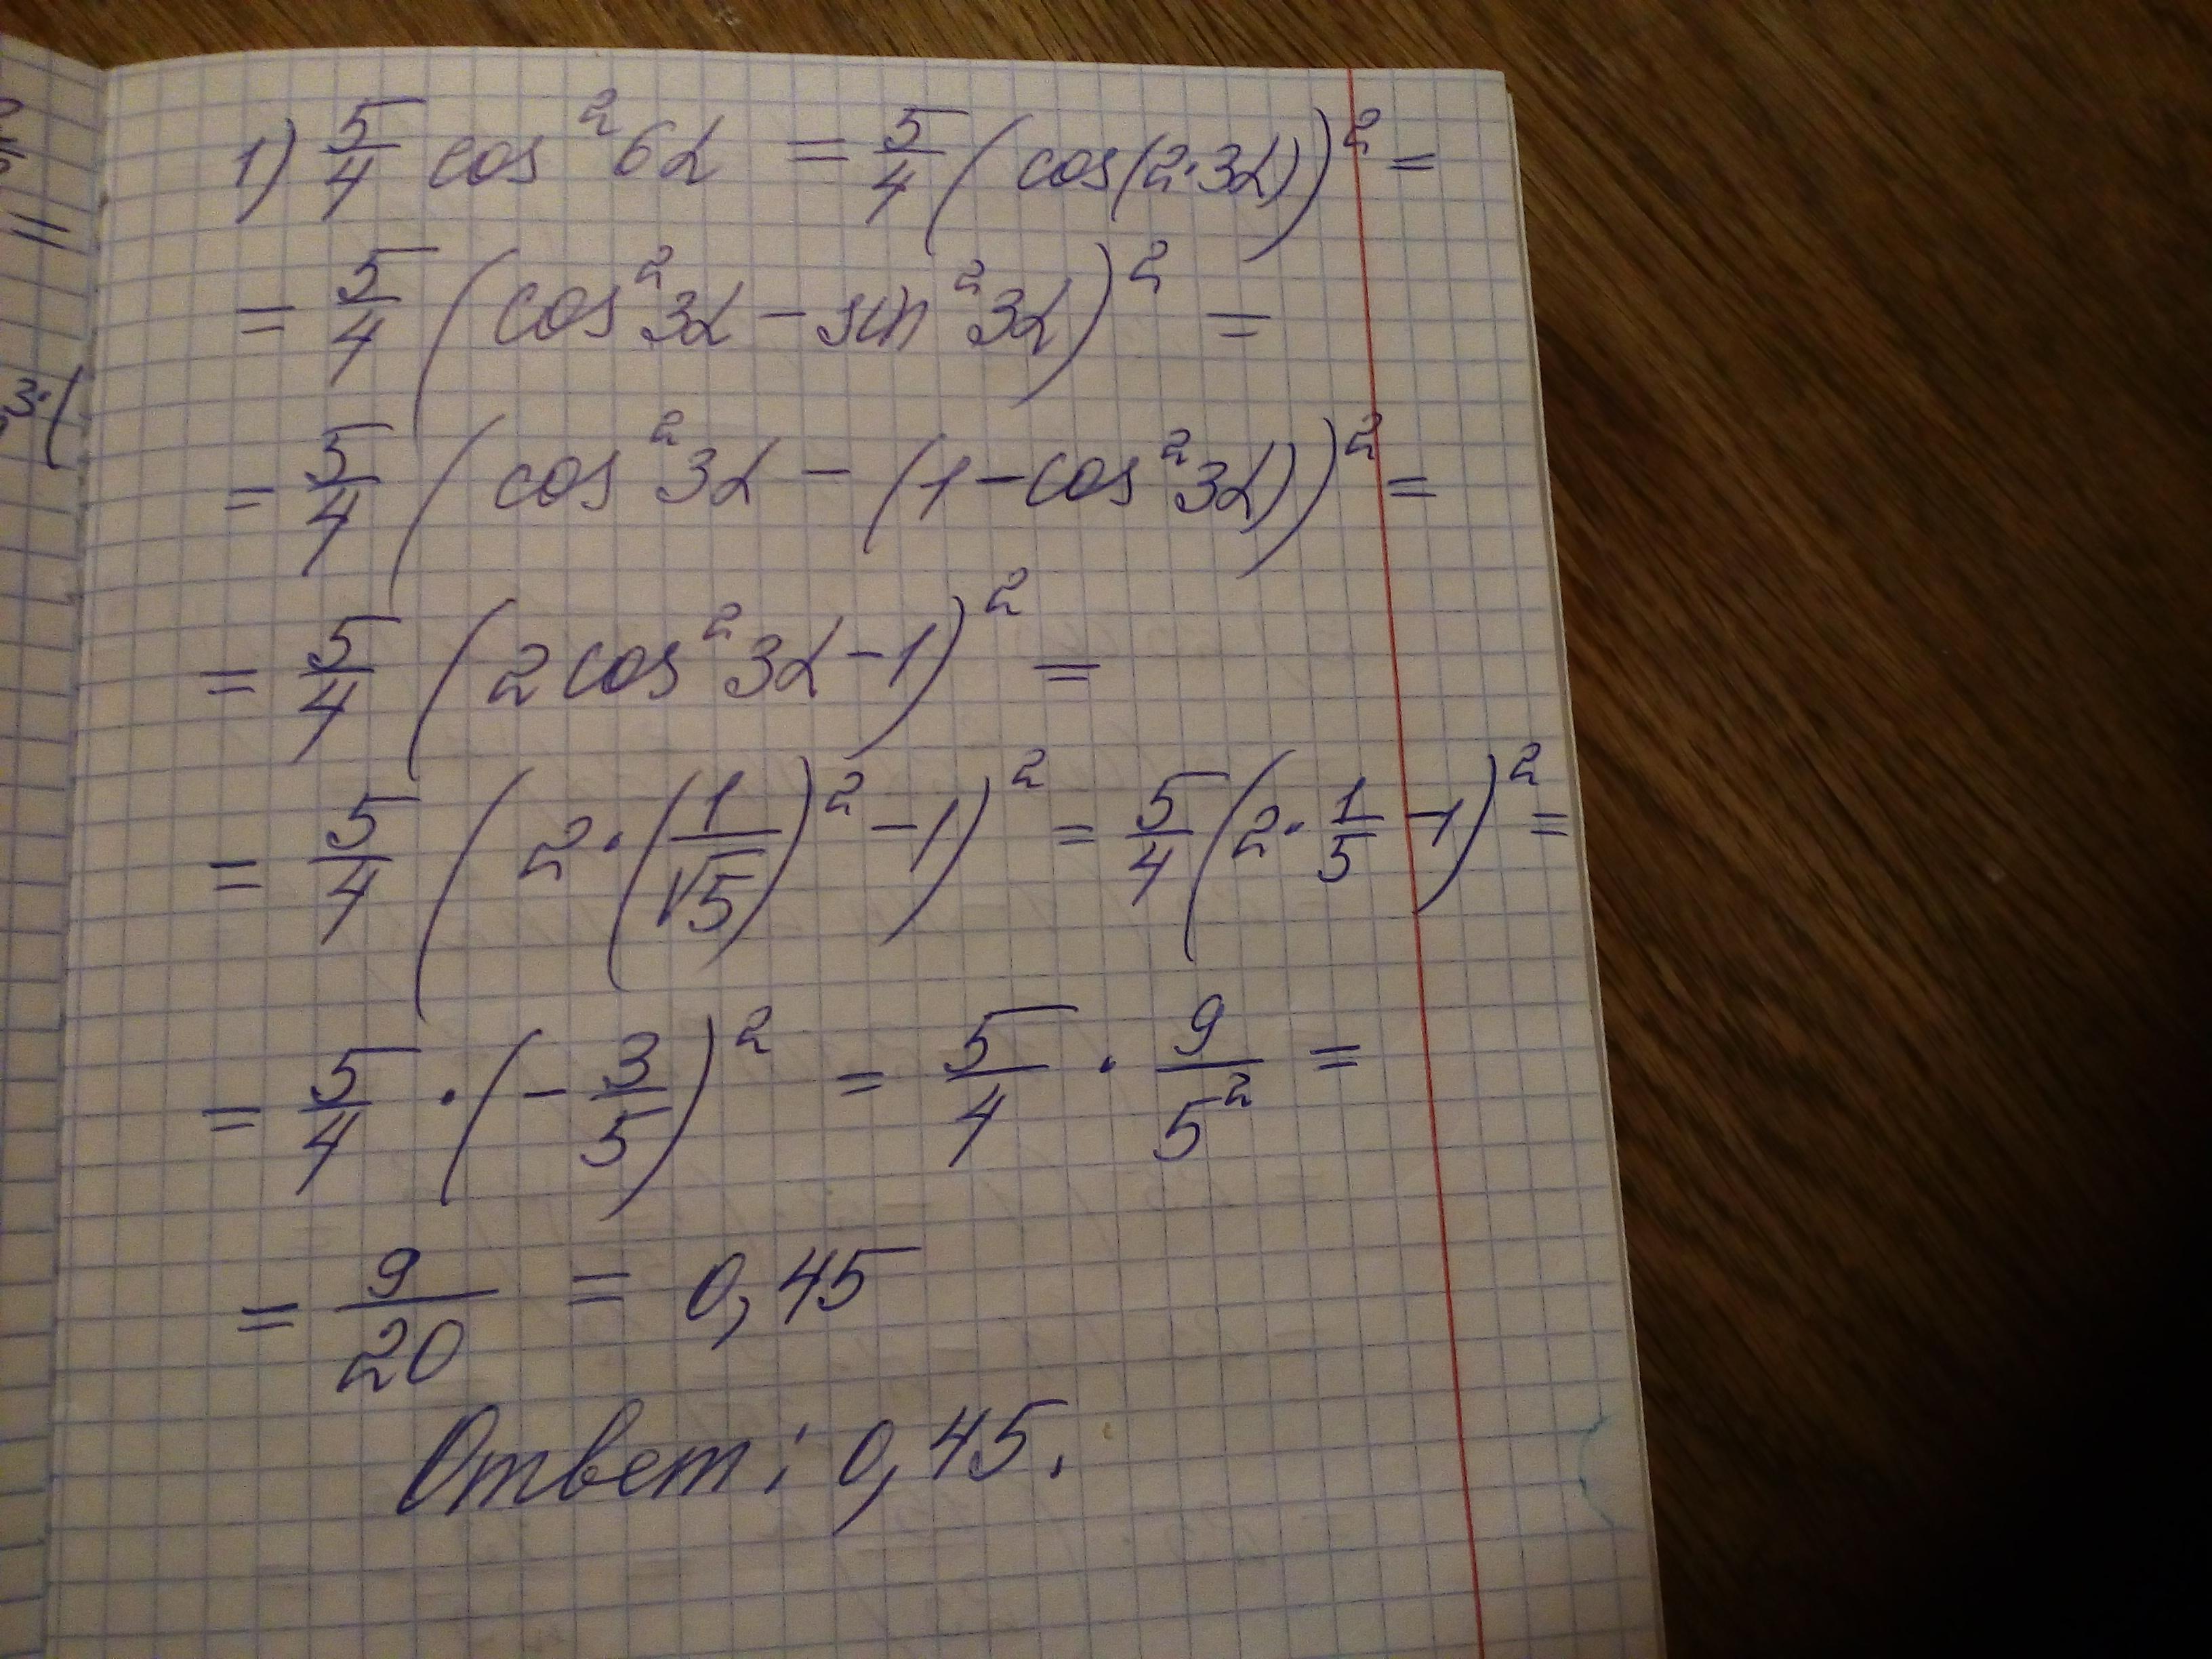 1) 5/4 cos²6α = 5/4 (cos(2·3α))² =
= 5/4 (cos²3α - sin²3α)² =
= 5/4 (cos²3α - (1 - cos²3α))² =
= 5/4 (2cos²3α - 1)² =
= 5/4 (2·(1/√5)² - 1)² = 5/4 (2·1/5 - 1)² =
= 5/4 · (-3/5)² = 5/4 · 9/5² =
= 9/20 = 0,45
Ответ: 0,45.